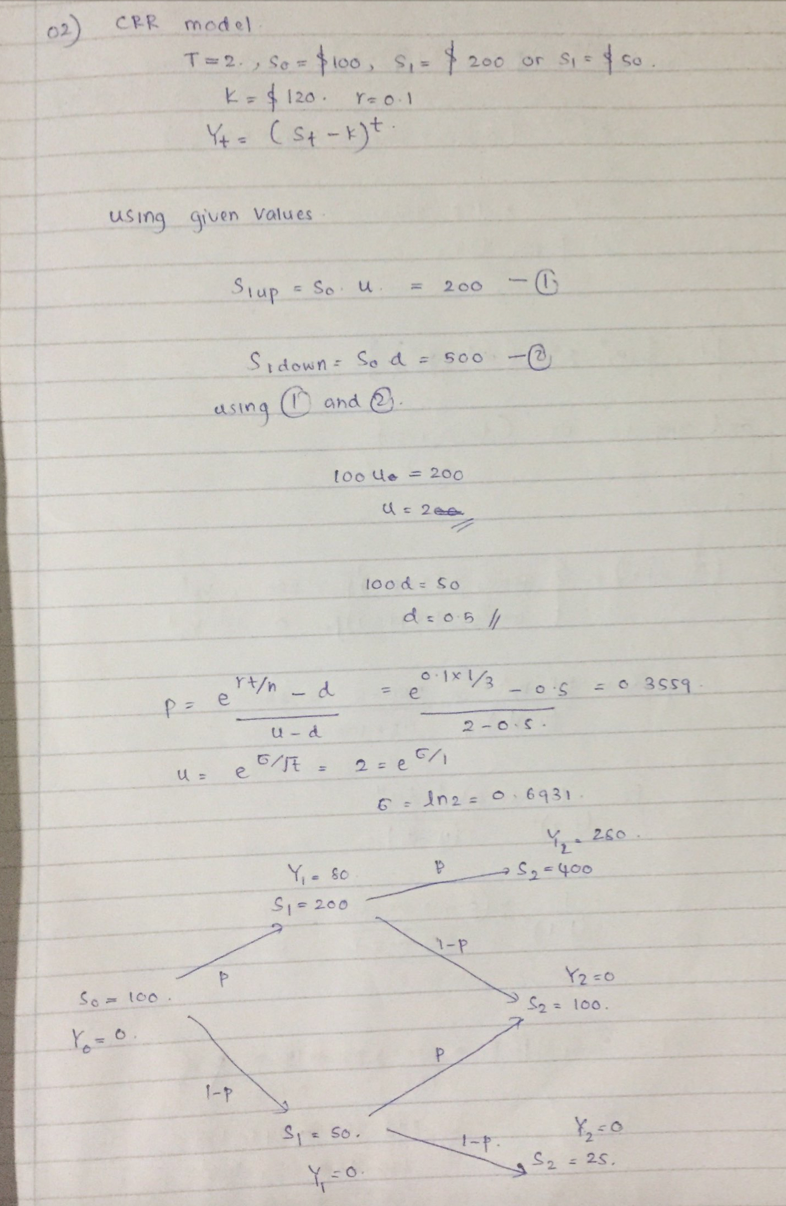 02) CRR model.
T=2. , S₀ = $100, S₁ = $ 200 or S₁ = $50.
K = $120. r=0.1
Yt = (St - K)⁺.
using given values.
S₁up = S₀. u. = 200 - ①
S₁down = S₀ d = 500 - ②
using ① and ②.
100 u = 200
u = 2
100 d = 50
d = 0.5 //
p = (e^(rt/n) - d)/(u - d) = (e^(0.1×1/3) - 0.5)/(2 - 0.5.) = 0.3559.
u = e^(σ/√t) = 2 = e^(σ/1)
σ = ln2 = 0.6931.
Y₂ = 280.
Y₁ = 80 p S₂ = 400
S₁ = 200
1-p
p Y₂=0
S₀ = 100. S₂ = 100.
Y₀ = 0.
p
1-p
S₁ = 50. 1-p. Y₂=0
Y₁ = 0. S₂ = 25.